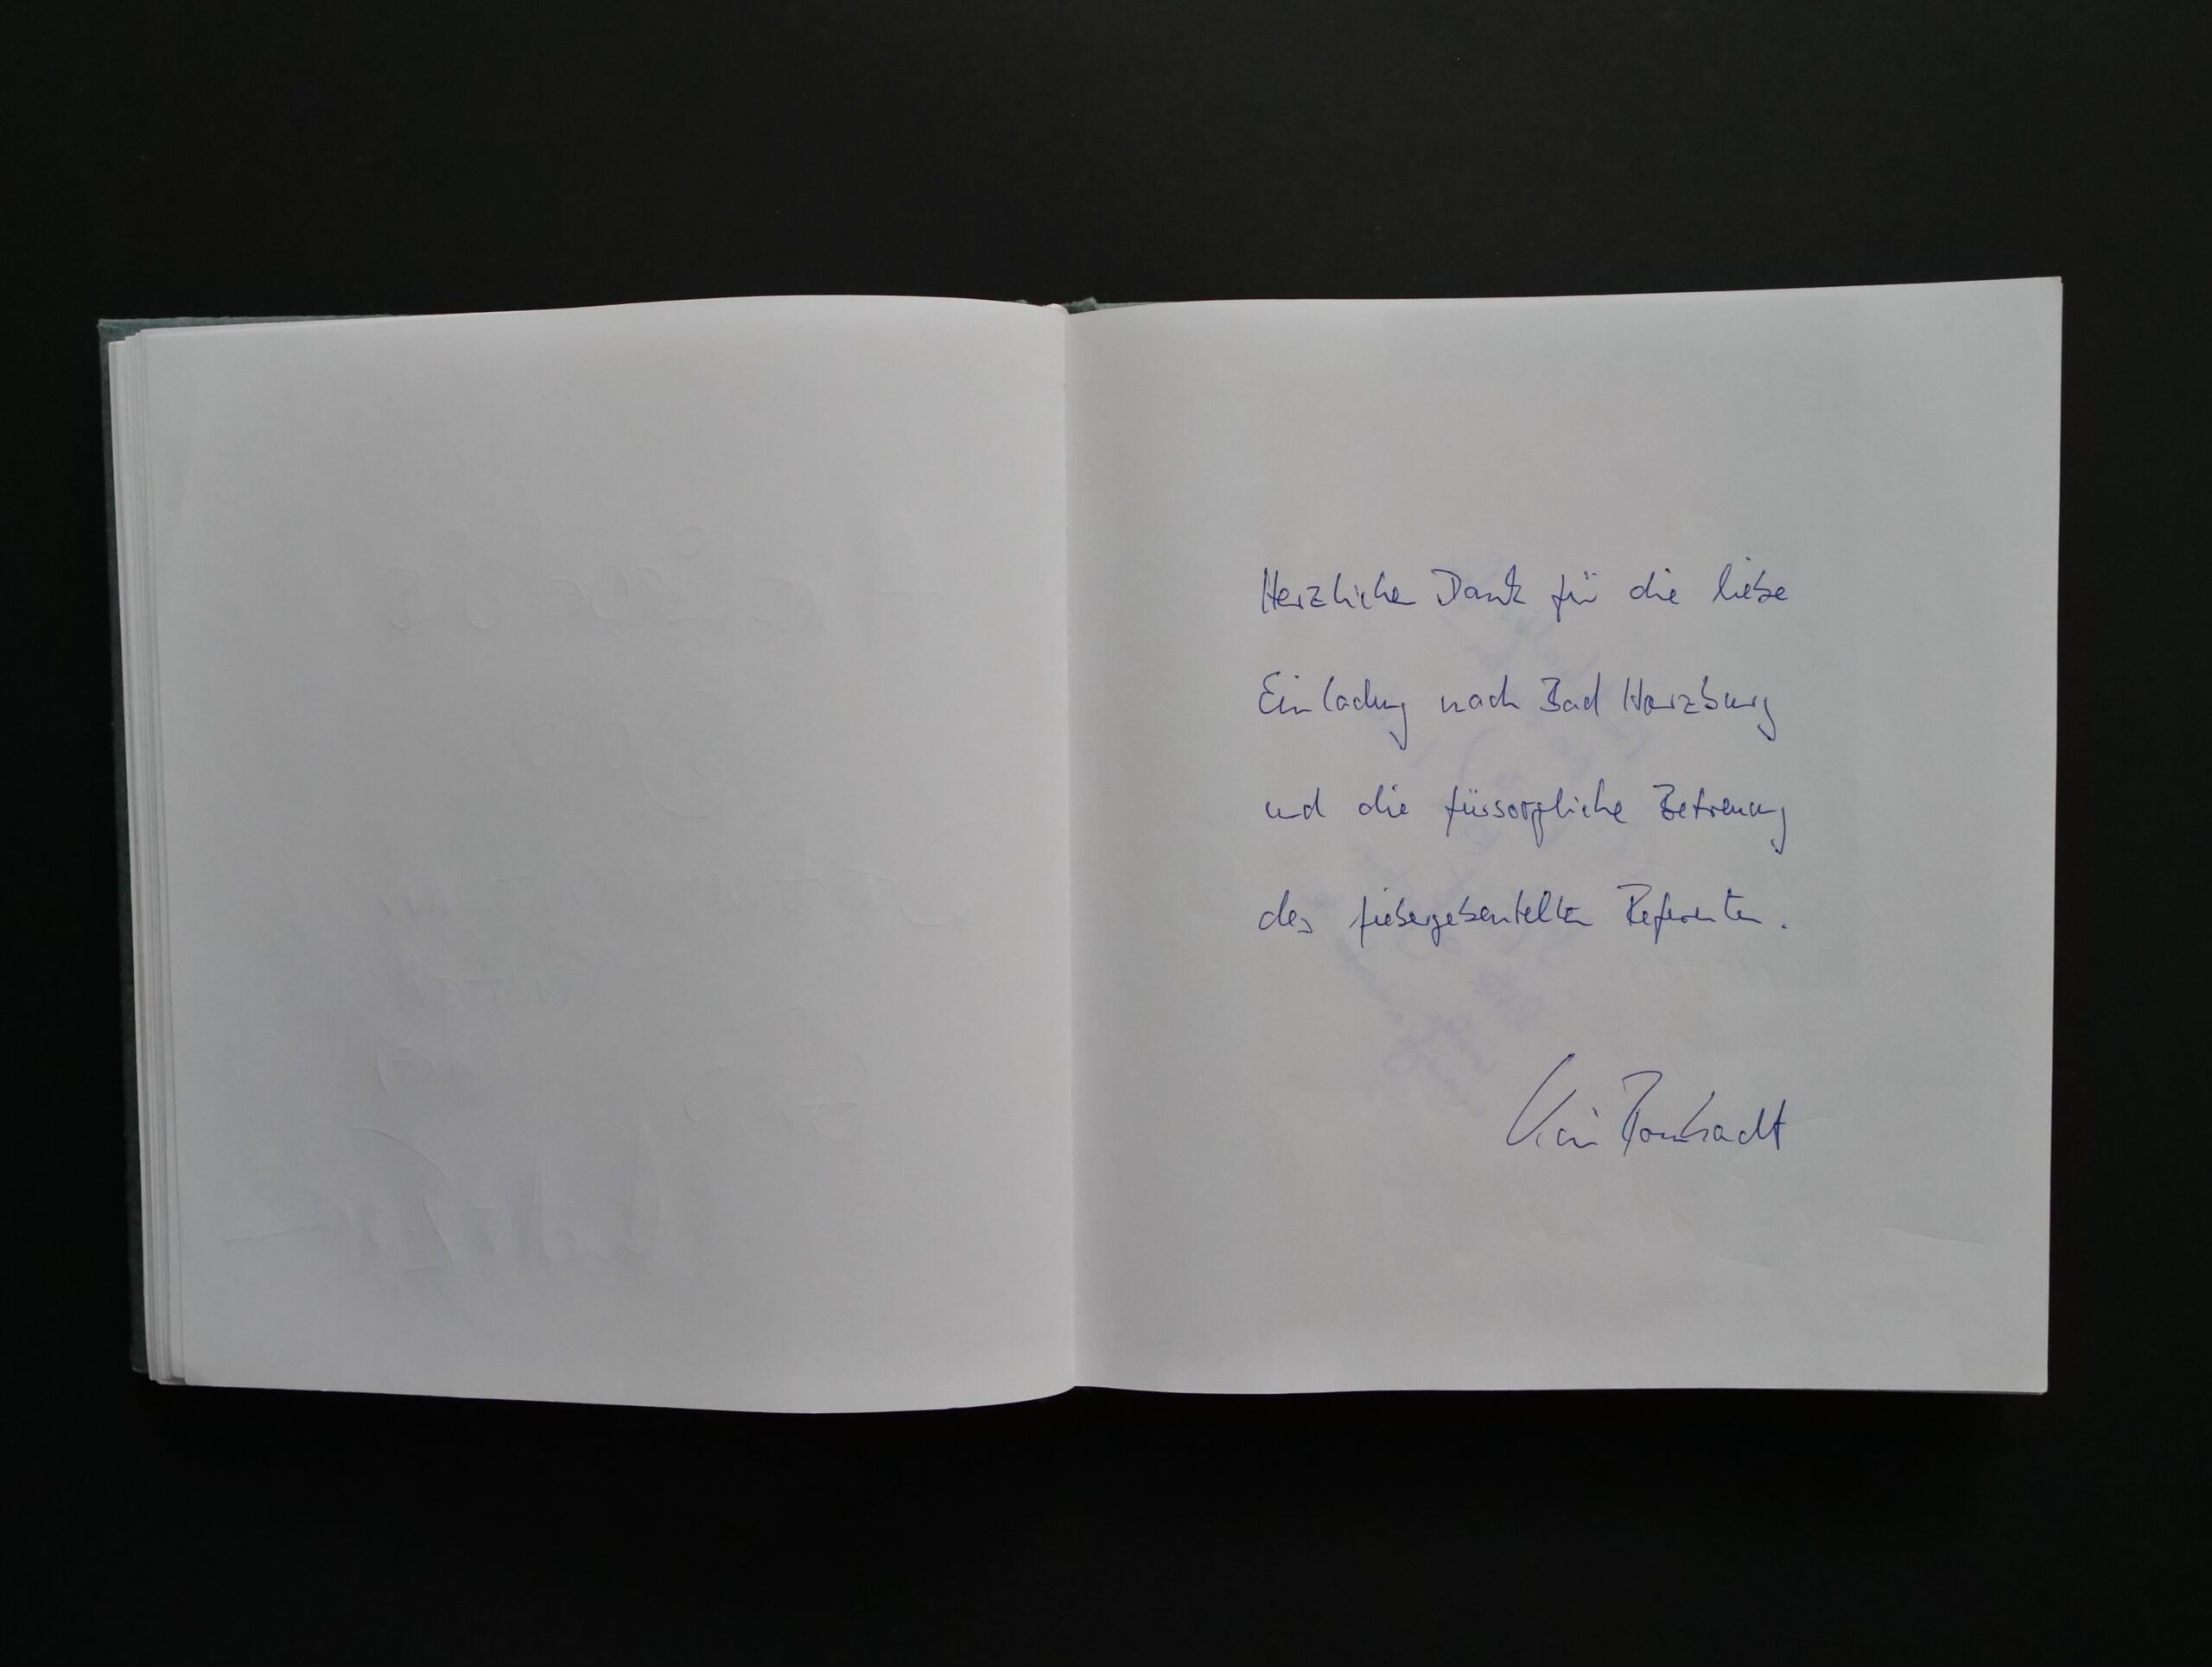 Herzlichen Dank für die liebe
Einladung nach Bad Harzburg
und die fürsorgliche Betreuung
des fiebergebeutelten Referenten.